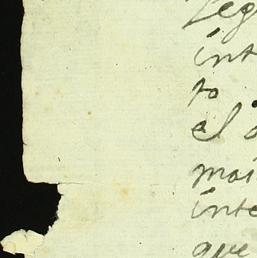 int
to
el
mai
inte
que